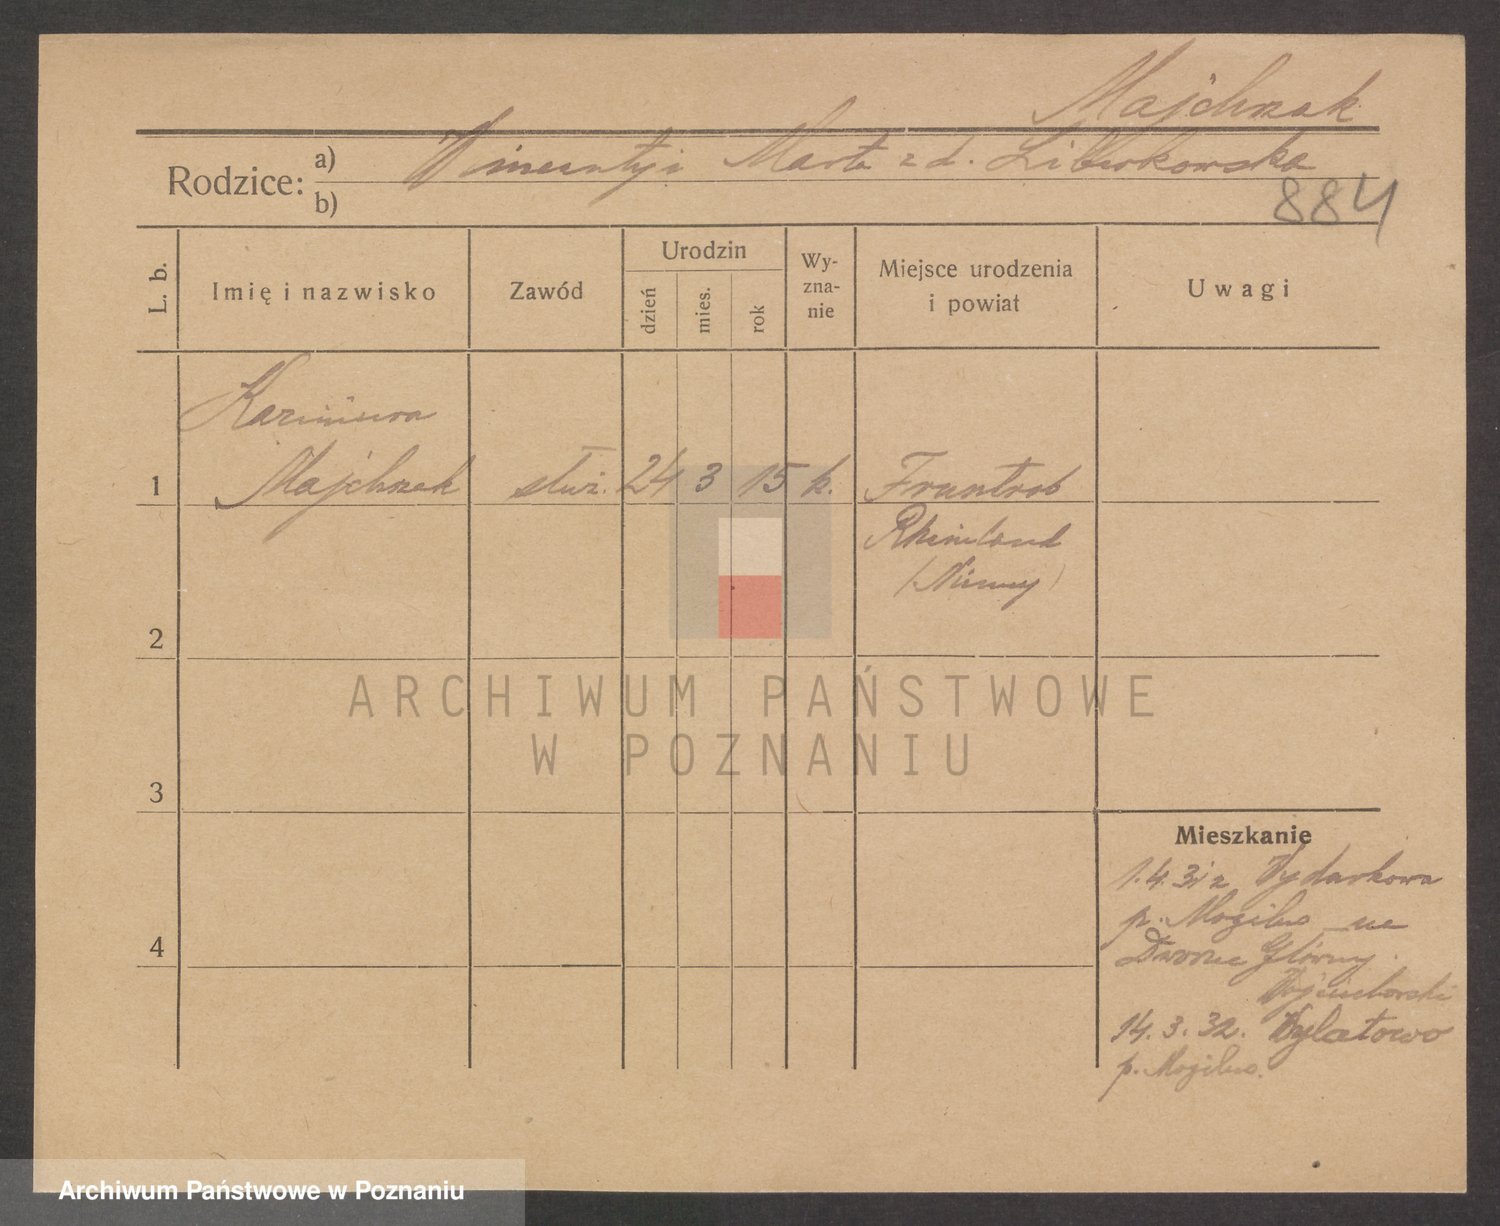 Majchrzak
Rodzice: a) Wincenty i Marta z d. Liberkowska
b)
884
L. b.
Imię i nazwisko
Zawód
Urodzin
dzień
mies.
rok
Wy-
zna-
nie
Miejsce urodzenia
i powiat
Uwagi
Kazimiera
1 Majchrzak służ. 24 3 15 k. Frontrob
Rheinland
(Niemcy)
2
ARCHIWUM PAŃSTWOWE
W POZNANIU
3
Mieszkanie
1.4.31 z Wydartowa
p. Mogilno na
4
Dworzec Główny.
Wojciechowski
14.3.32. Wylatowo
p. Mogilno.
Archiwum Państwowe w Poznaniu